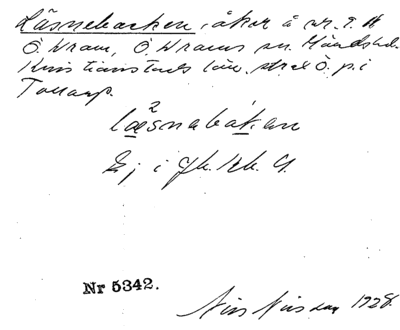 Läsnebacken, åker å nr. 7. A
Ö. Vram, Ö. Vrams sn. Gärds hd.
Kristianstads län, strax Ö. p. i
Tollarp.
2
läsnebákan
Ej i Jb. Kb. G.
Nr 5342.
1928.